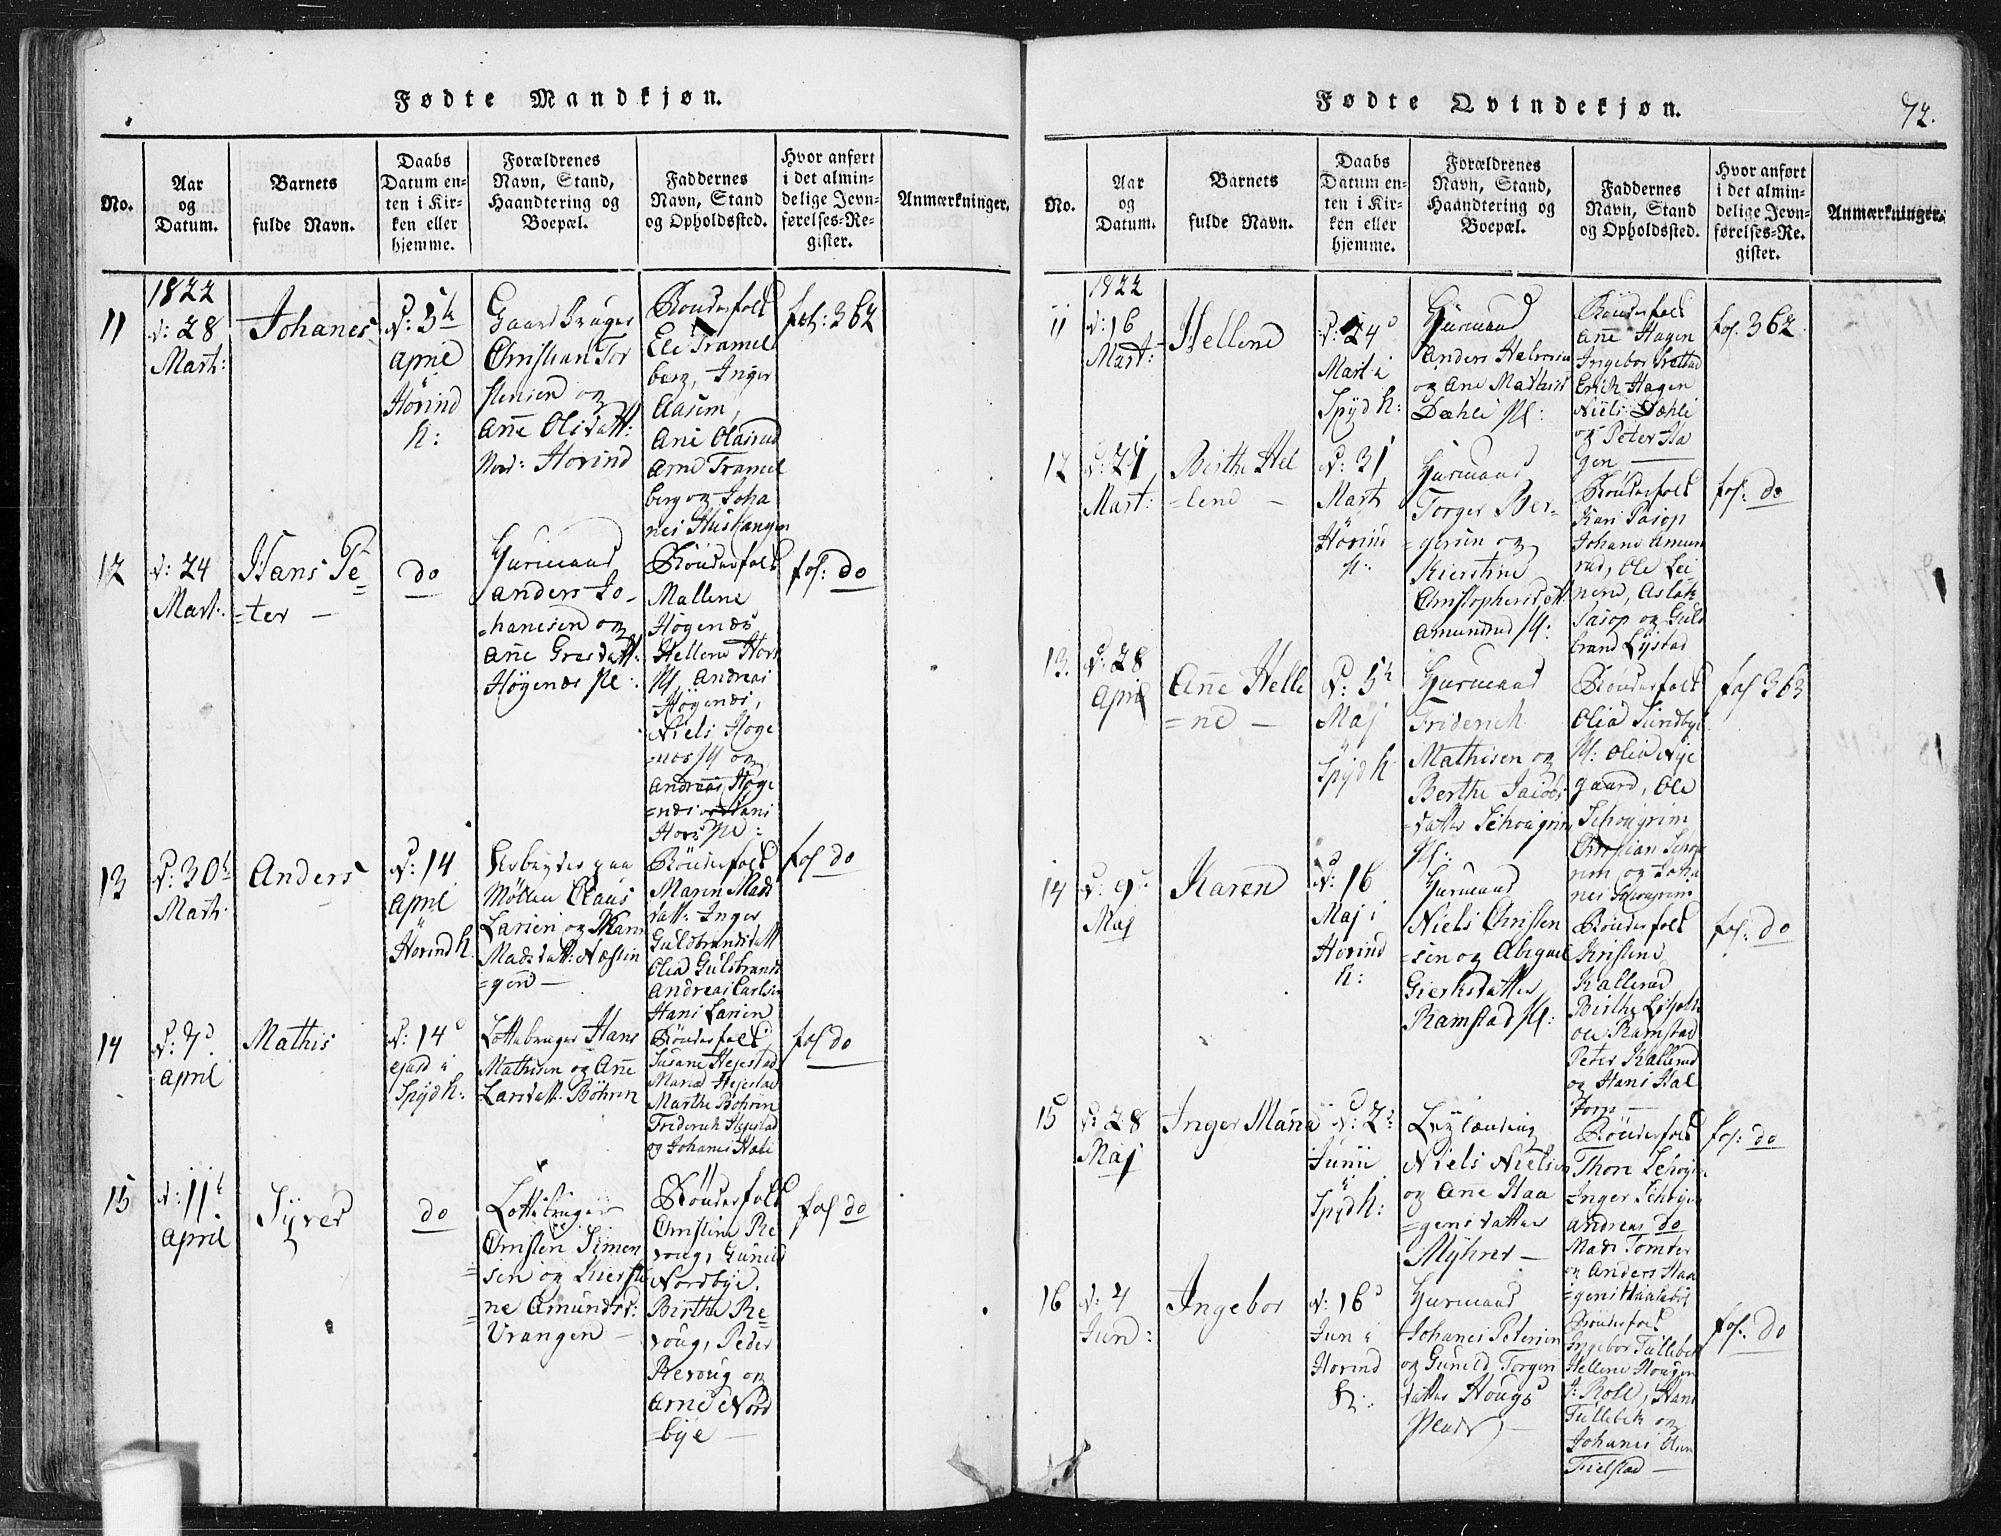 Fødte Mandkjøn.
No.
Aar
og
Datum.
Barnets
fulde Navn.
Daabs
Datum en-
ten i Kir-
ken eller
hjemme.
Forældrenes
Navn, Stand,
Haandtering og
Boepæl.
Faddernes
Navn, Stand
og Opholdssted.
Hvor anført
i det almin-
delige Jevn-
førelses-Re-
gister.
Anmærkninger.
11
1822
d: 28
Mart:
Johanes
d: 5h
April
i
Hörind
k:
Gaardbruger
Christian Tor
stensen og
Añe Olsdatt:
Nord: Horind
Bönderfolk
Ele Tramel
berg, Inger
Aasum,
Ane Olasrud
Arne Tramel
berg og Joha
nes
fol: 362
12
d: 24
Mart:
Hans Pe=
=ter —
do
Huusmand
Anders Jo-
=hanesen og
Añe Gresdatt:
Högenæs Pl:
Bönderfolk
Mallene
Högenæs
Hellene Hors
Pl Andreas
Högenæs,
Niels Höge
=næs Pl og
Andreas Höge
=næs Hans
Hors Pl:
fol: do
13
d: 30h
Mart:
Anders
d: 14
April
i
Horind k.
Arbeyder paa
Möllen Claus
Larsen og Karen
Madsdatt: Næslin
=gen —
Bönderfolk
Maren Mads
datt: Inger
Guldbrandsdatt
Olea Guldbrands
Andreas Carlsen
Hans Larsen
fol do
14
d: 7d
April
Mathis
d: 14d
ejusd i
Spydk:
Lottebruger Hans
Mathisen og Añe
Larsdatt: Böhren
Bönderfolk
Susane Hejestad
Maria Hejestad
Marthe Böhren
Friderich Hejestad
og Johanes Hæli
fol do
15
d: 11t
April
Syver
do
Lottebruger
Christen Simen
=sen og Kiersti
=ne Amundsd:
Vrangen —
Bönderfolk
Christine Re
voug, Gunild
Nordbye,
Berthe Re=
voug, Peder
Revoug og
Arne Nord
=bye —
fol do
Fødte Qvindekjøn.
72.
No.
Aar
og
Datum.
Barnets
fulde Navn.
Daabs
Datum en-
ten i Kir-
ken eller
hjemme.
Forældrenes
Navn, Stand,
Haandtering og
Boepæl.
Faddernes
Navn, Stand
og Opholdssted.
Hvor anført
i det almin-
delige Jevn-
førelses-Re-
gister.
Anmærkninger.
11
1822
d: 16
Mart:
Hellene
d: 24d
Mart i
Spyd k:
Huusmand
Anders Halvorsen
og Ane Mathis
Dæhli Pl:
Bönderfolk
Añe Hagen
Ingebor
Erich Hagen
Niels Dæhli
og Peter Ha
gen —
fol. 362
12
d: 21
Mart:
Berthe Hel
=lene —
d: 31
Mart
i
Hörind
k:
Huusmand
Torger Ber=
=gersen og
Kierstine
Christophersdatt
Amundrud Pl:
Bönderfolk
Kari Pasop
Johane Amund
rud, Ole Lei
nene, Aslak
Pasop og Guld
brand Lystad
fol: do
13.
d: 28
April
Añe Helle
=ne —
d: 5h
Maj
i
Spydk
Huusmand
Friderich
Mathisen og
Berthe Jacobs
=datter Schougrim
Pl:
Bönderfolk
Olea Sundbye
Pl: Olea Nye
gaard, Ole
Schougrim
Christian Schog
rim og Joha
nes Schougrim
fol 363
14
d: 9d
Maj
Karen
d: 16
Maj i
Hörind
k:
Huusmand
Niels Christen
=sen og Abigael
Gierksdatter
Ramstad Pl:
Bönderfolk
Kristine
Kallerud
Birthe
Ole Ramstad
Peter Kallerud
og Hans Hal
torp —
fol: do
15
d: 28
Maj
Inger Maria
d: 2:
Junii
i
Spydk:
Leylænding
Niels Nielsen
og Añe Haa
=gensdatter
Myhrer —
Bönderfolk
Thore Schogen
Inger Schogen
Andreas do
Mads Tomter
og Anders Haa
=gens
fol: do
16
d: 4
Jun:
Ingebor
d: 16d
Jun i
Horind
k:
Huusmand
Johanes Petersen
og Gunild Torgers
datter Hougs
Pladz —
Bönderfolk
Ingebor Tullebek
Hellene Hougen
Role, Hans
Tullebek og
Johanes
Tielstad —
fol: do